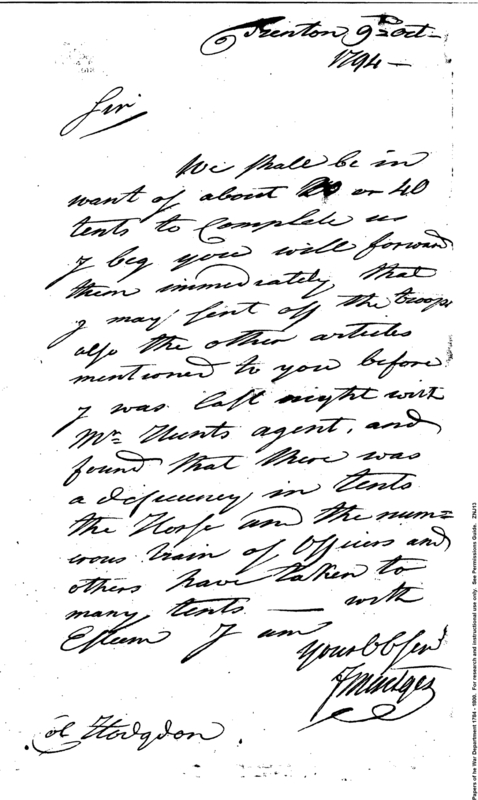 Trenton 9th Oct
1794 –
Sir
We shall be in
want of about or 40
tents to Complete us
I beg you will forward
them immediately that
I may sent off the troops
also the other articles
mentioned to you before
I was last night with
Mr Hunts agent, and
found that there was
a deficiency in tents
the Horse and the num=
erous train of Officers and
others have taken to
many tents — with
Esteem I am
Your Ob Ser
F Mentges
Col Hodgdon
Papers of the War Department 1784 - 1800. For research and instructional use only. See Permissions Guide. ZNJ13